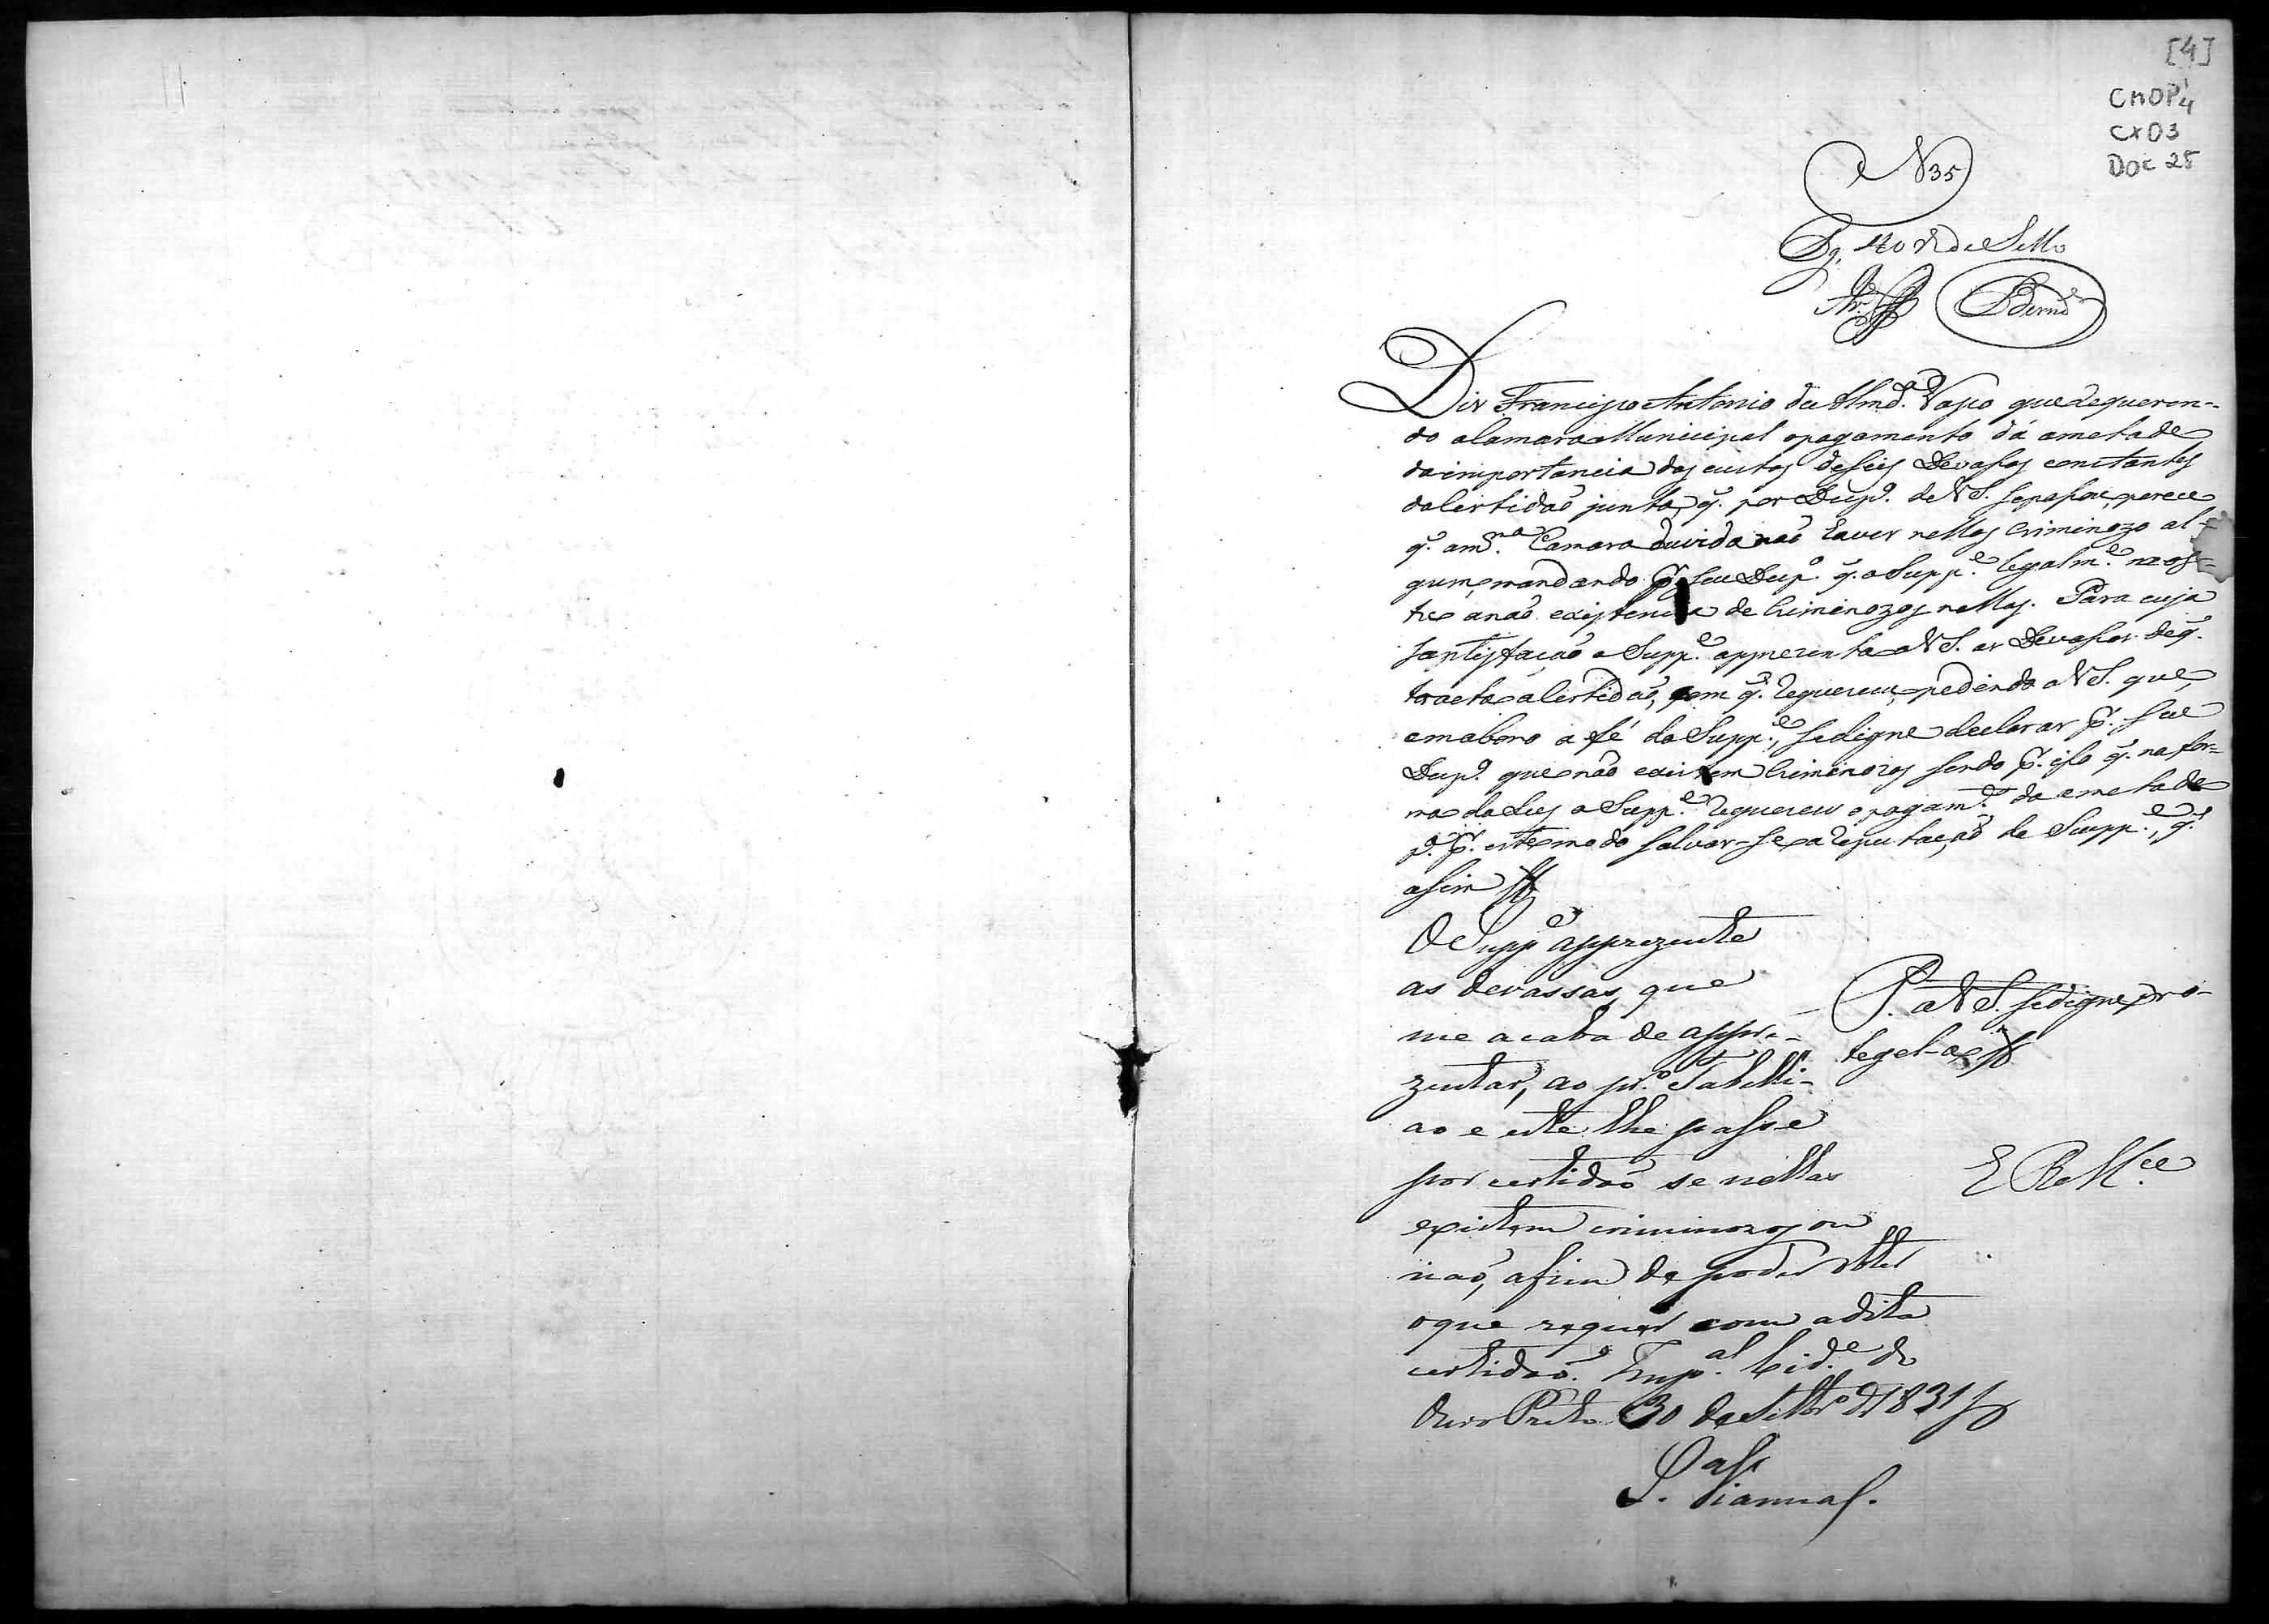 [4]
CMOP 1/4
CX03
DOC 25
N 35
Pg. 40 r. de Sello
Diz Francisco Antonio de Almd.ª Vasco que requeren-
do a Camara Municipal o pagamento dá ametade
da importancia das custas de seis Devassas constantes
da Certidaõ junta, q. por Desp.º de V S. se passou, parece
q. a m.ma Camara duvida naõ haver nellas Criminozo al-
gum, mandando p.r seu Desp.º q. o Supp.e legalm.e mos-
tre a naõ existencia de Criminozos nellas. Para cuja
satisfaçaõ o Supp.e apprezenta a V S. as Devassas de q.
tracta a Certidaõ, com q. requereu, pedindo a V S. que,
em abono a fé do Supp.e, se digne declarar p.r seu
Desp.º que não existem Criminozos sendo p.r isso q. na for-
ma da Lei o Supp.e requereu o pagam.to da ametade
p.ª p.r este modo salvar-se a reputaçaõ do Supp.e, q.
assim
P. a V S. se digne pro-
tegel-o
E R M.ce
O Supp.e apprezente
as devassas, que
me acaba de appre-
zentar, ao pr.º Tabelli-
ao e este lhe passe
por certidaõ se nellas
existem criminozos ou
naõ, afim de poder obter
o que requer com a dita
certidaõ. Imp.al Cid.e do
Ouro Preto 30 de Setbr.º de 1831